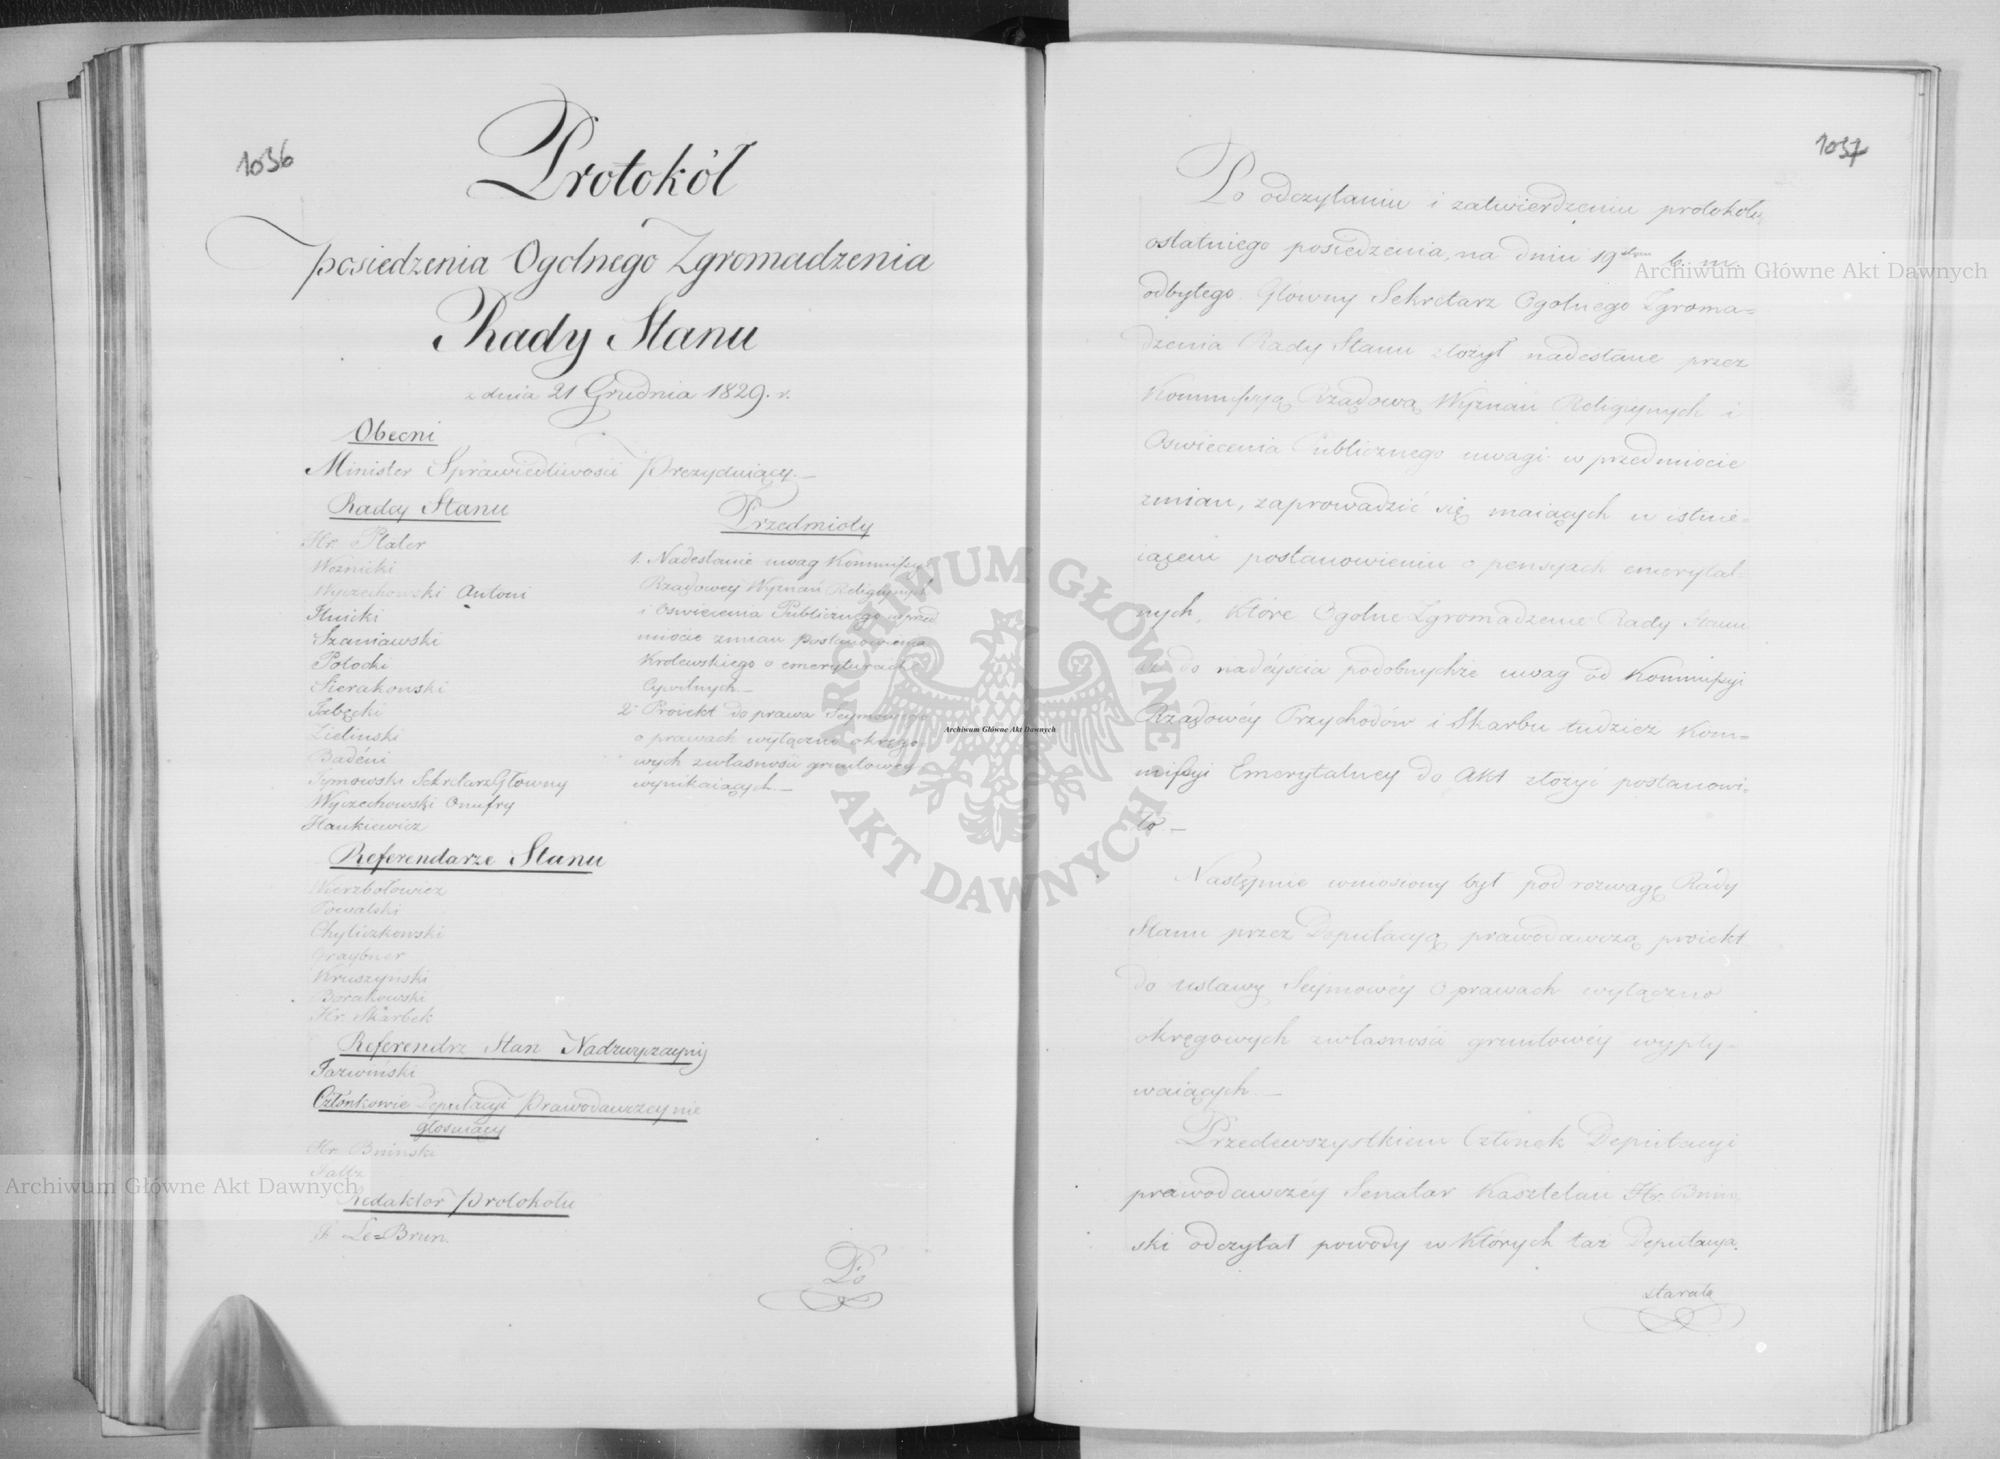 1036
Protokół
posiedzenia Ogolnego Zgromadzenia
Rady Stanu
z dnia 21 Grudnia 1829. r.
Obecni
Minister Sprawiedliwości Prezyduiący.—
Radcy Stanu
Hr. Plater
Woznicki
Wyczechowski Antoni
Hnicki
Szaniawski
Potocki
Sierakowski
Zielinski
Badéni
Tymowski Sekretarz Głowny
Wyczechowski Onufry
Hankiewicz
Referendarze Stanu
Wierzbołowicz
Powalski
Chyliczkowski
Graybner
Kruszyński
Borakowski
Hr. Skarbek
Referendrz Stan Nadzwyczayny
Członkowie Deputacyi Prawodawczey nie
głosuiący
Hr. Bninski
Faltz
Redaktor Protokołu
Le=Brun.
Przedmioty
1. Nadesłanie uwag Kommissyi
Rządowey Wyznań Religiynych
i Oswiecenia Publicznego w przed
miocie zmian postanowienia
Krolewskiego o emeryturach
Cywilnych.—
2. Proiekt do prawa Seymowego
o prawach wyłączno okręgo
wych z własności gruntowey
wynikaiących.—
Po
1037
Po odczytaniu i zatwierdzeniu protokołu
ostatniego posiedzenia, na dniu 19 b. m.
odbytego. Głowny Sekretarz Ogolnego Zgroma=
dzenia Rady Stanu złożył nadesłane przez
Kommissyą Rządową Wyznań Religiynych i
Oswiecenia Publicznego uwagi w przedmiocie
zmian, zaprowadzić się maiących w istnie=
iącém postanowieniu o pensyach emerytal=
nych, które Ogolne Zgromadzenie Rady Stanu
aż do nadéyscia podobnychże uwag od Kommissyi
Rządowéy Przychodów i Skarbu tudziez Kom=
missyi Emerytalney do Akt złożyć postanowi=
ło.—
Następnie wnosiony był pod rozwagę Rady
Stanu przez Deputacyą prawodawczą proiekt
do ustawy Seymowéy o prawach wyłączno
okręgowych z własności gruntowéy wypły=
waiących.—
Przedewszystkiem Członek Deputacyi
prawodawczéy Senator Kasztelan Hr. Bnin=
ski odczytał powody w których taż Deputacya
starała
Archiwum Główne Akt Dawnych
Archiwum Główne Akt Dawnych
Archiwum Główne Akt Dawnych
ARCHIWUM GŁÓWNE · AKT DAWNYCH ·